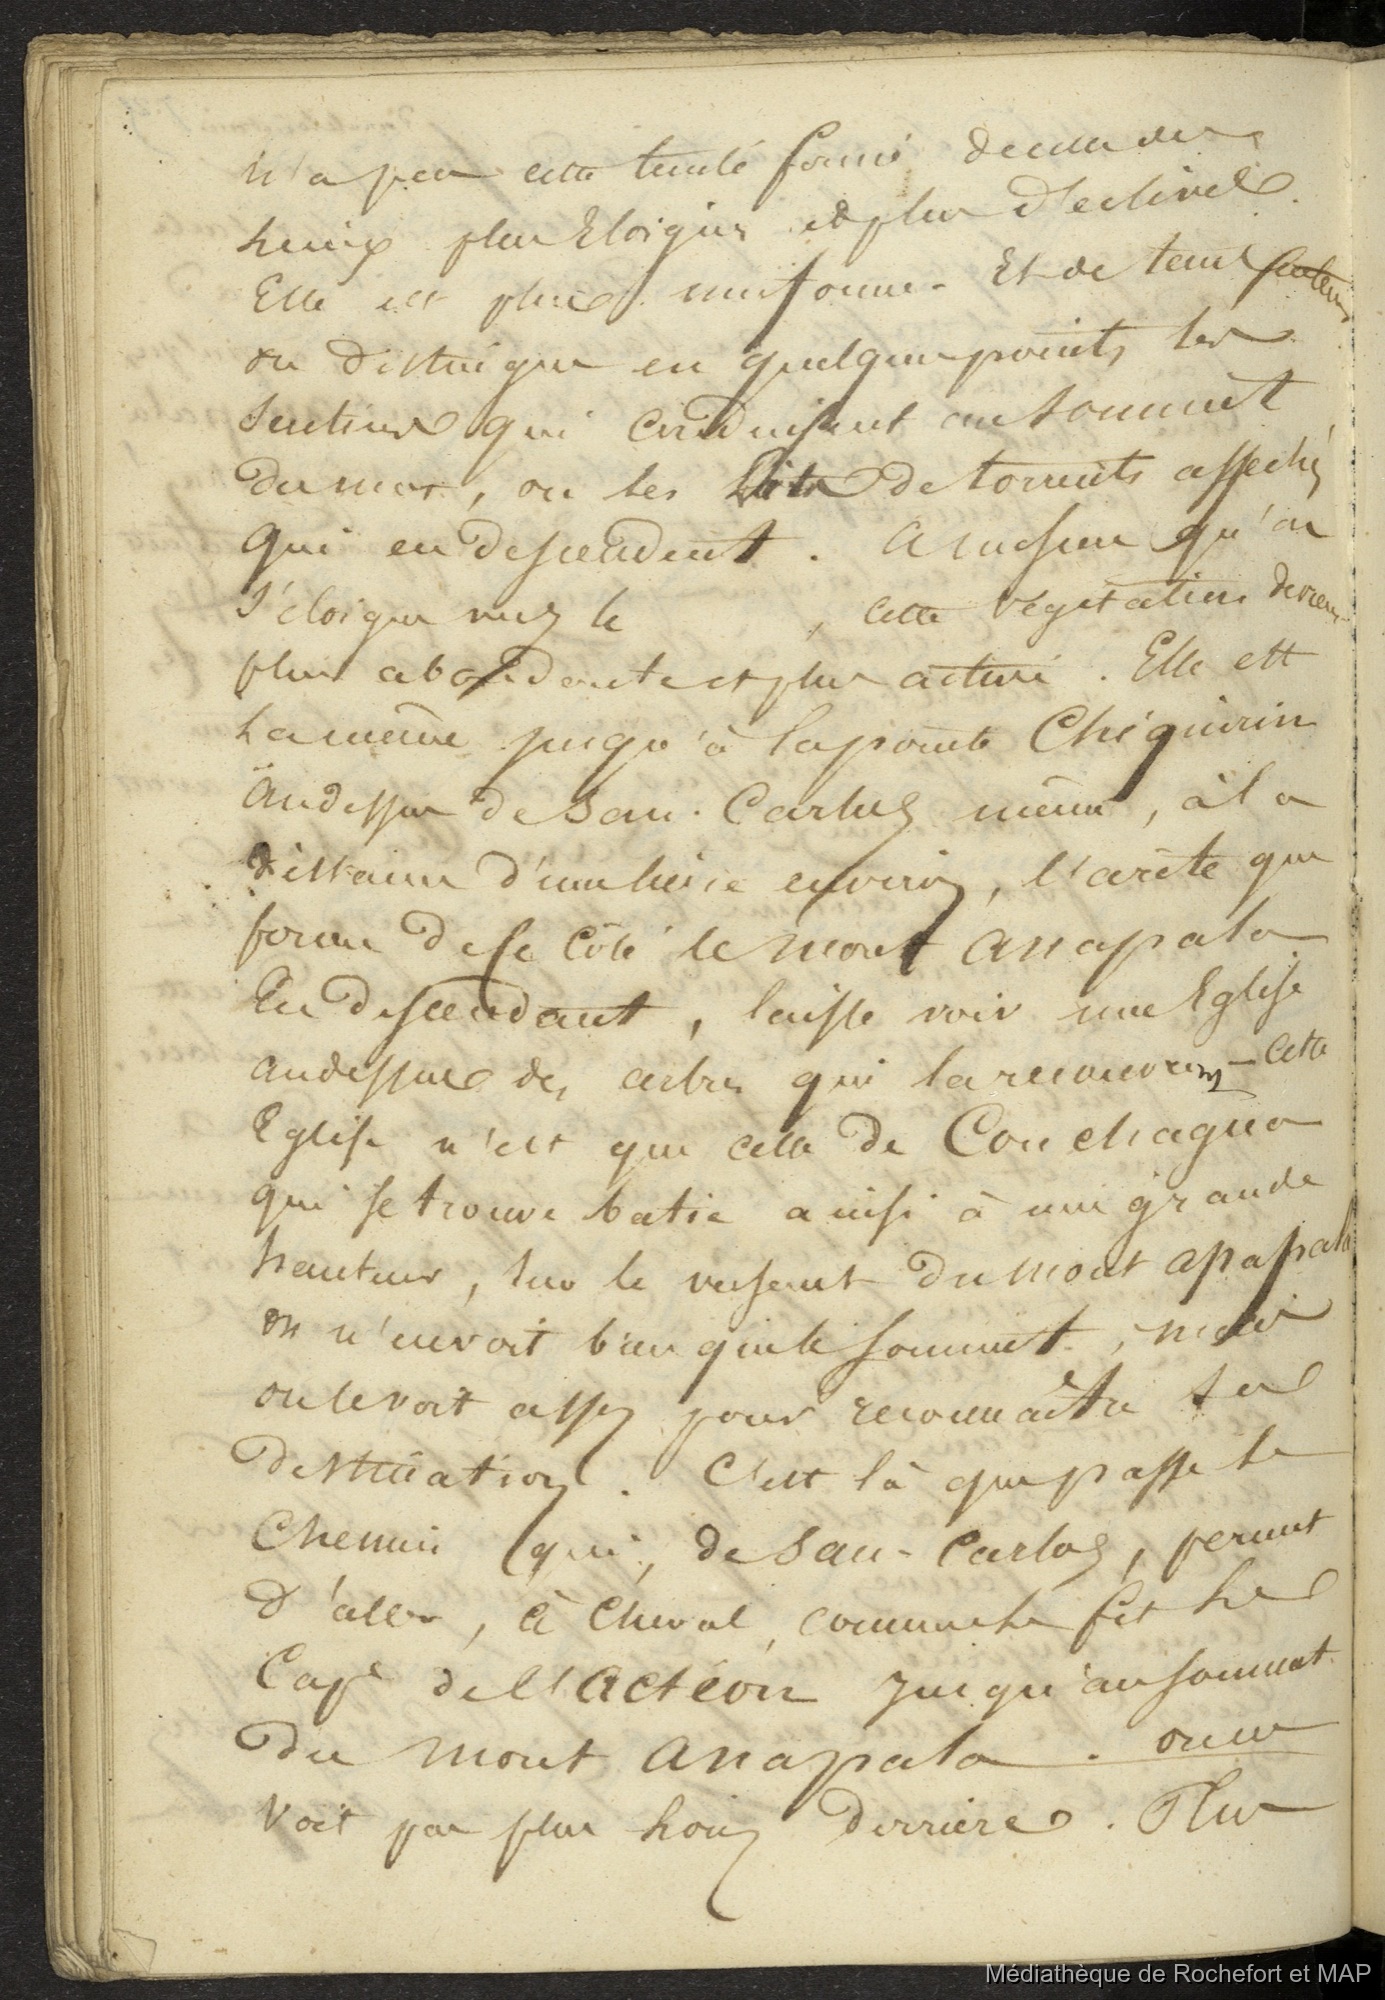 n'a pas cette teinte foncé de celle des
lieux plus Eloignés et plus déclives.
Elle est plus uniforme. Et de tems
on distingue en quelques points les
sentiers qui conduisent au sommet
du mont, ou les lits de torrents assechés
qui en descendent. A mesure qu'on
s'éloigne vers le , cette végétation devient
plus abondante et plus active. Elle est
la même jusqu'à la pointe Chiquirin
Au dessus de San-Carlos même, à la
distance d'une lieue environ, l'arête que
forme de ce côté le mont Anapala
En descendant, laisse voir une Eglise
au dessus des arbres qui la recouvrent - Cette
Eglise n'est que celle de Conchagua
qui se trouve batie ainsi à une grande
hauteur, sur le versant du mont Apapala
on n'en voit bien que le sommet, mais
on le voit assez pour reconnaître sa
destination. C'est là que passe le
Chemin qui, de San-Carlos, permet
d'aller, à Cheval, comme le fit le
Cap.e de l'Actéon jusqu'au sommet
du mont Anapala. on ne
voit pas plus loin derrière. Plus
Médiathèque de Rochefort et MAP